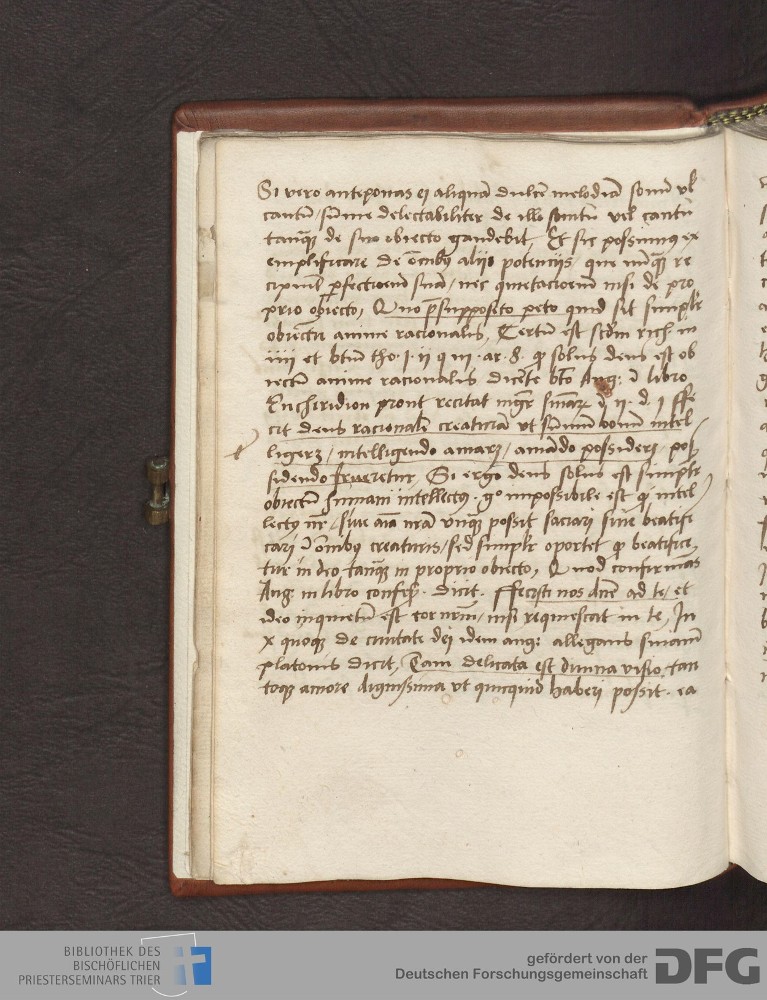 Si vero anteponas ei aliquā dulcē melodiā sonū vl
cantū / sūme delectabiliter de illo sonitu vel cantu
tanq̄ de suo obiecto gaudebit, Et sic possumus ex
emplificare de om̄ibꝫ aliis potenciis / que nūq̄ re
cipiunt p̄fectionem suā / nec quietacionem nisi de pro
prio obiecto, Quo p̄supposito peto quid sit simplr
obiectū anime racionalis, Certū est scdm rich in
iiii et btm tho · j · ii q iii · ar · 8 · ꝙ solus deus est ob
iectū anime racionalis dicēte bto Aug: ī libro
Enchiridion prout recitat mgr sniarꝫ ī ii · d · j ffe
cit deus racionalē creaturā ut sūmum bonū intel
ligerꝫ / intelligendo amarꝫ / amādo possiderꝫ / pos
sidendo frueretur, Si ergo deus solus est simplr
obiectū humani intellectꝰ · gº impossibile est ꝙ intel
lectꝰ nr̄ / siue aīa nrā vnq̄ possit saciari siue beatifi
cari ī om̄ibꝫ creaturis / sed simplr oportet ꝙ beatifice
tur in deo tanq̄ in proprio obiecto, Quod confirmās
Aug: in libro confess · dicit · ffecisti nos dn̄e ad te / et
ideo inquietū est cor nrm / nisi requiescat in te, In
x quoqꝫ de ciuitate dei idem aug: allegans sniam
platonis dicit, Tam delicata est diuina visio tan
toqꝫ amore dignissima vt quicquid haberi possit · ea
BIBLIOTHEK DES
BISCHÖFLICHEN
PRIESTERSEMINARS TRIER
gefördert von der
Deutschen Forschungsgemeinschaft
DFG